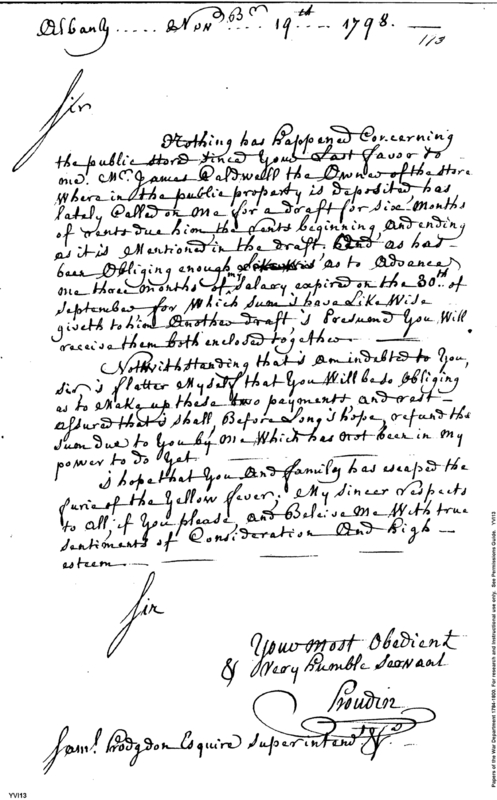 Albany ..... Novber .... 19th .... 1798. —
113
Sir
Nothing has happened Concerning
the public stord since Your Last favor to
me. Mr. James Caldwell the Owner of the store
Where in the public property is deposited has
lately Called on Me for a draft for six Months
of rents due him, the rents beginning, and ending
as it is Mentioned in the draft. And as has
been Obliging enough, as to Advance
me three months of my salary expired on the 30th. of
september for Which sum i have Like Wise
giveth to him Another draft, i Presumed You Will
receive them both enclosed together. —
Nothwithstanding that i Am indebted to You,
sir i flatter Myself that You Will be so Obliging
as to Make up these two payments and rest —
assured that i shall, Before Long i hope, refund the
sum due to You by Me Which has Not been in My
power to do Yet —
i hope that You And family has escaped the
furie of the Yellow fever; My sincer respects
to all, if You please, and Beleive Me With true
sentiments of Consideration And high —
esteem —
Sir
Your Most Obedient
& Very humble Servant
Proudin
Saml. Hodgdon Esquire Superintendt. &a.
Papers of the War Department 1784-1800. For research and instructional use only. See Permissions Guide. YVI13
YVI13